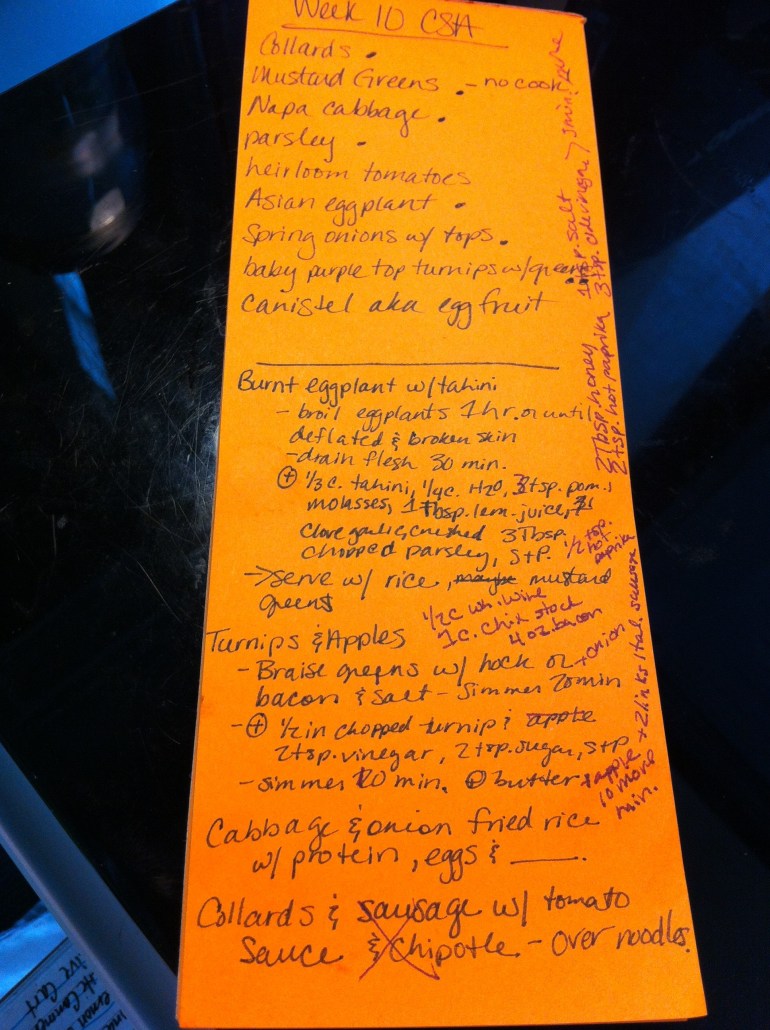 Week 10 CSA
Collards .
Mustard Greens . - no cook
Napa cabbage .
parsley .
heirloom tomatoes
Asian eggplant .
Spring onions w/ tops .
baby purple top turnips w/greens
canistel aka egg fruit
Burnt eggplant w/tahini
- broil eggplants 1hr. or until
deflated & broken skin
- drain flesh 30 min.
⊕ 1/3 c. tahini, 1/4 c. H2O, tsp. pom.
molasses, 1 Tbsp. lem. juice,
clove garlic, crushed 3 Tbsp.
chopped parsley, S+P. 1/2 tsp.
hot
paprika
→ serve w/ rice, maybe mustard
greens
1/2 c wh. wine
1 c. chix stock
4 oz. bacon
Turnips & Apples
- Braise greens w/ hock or + onion
bacon & salt - simmer 20 min
- ⊕ 1/2 in chopped turnip & apple
2 tsp. vinegar, 2 tsp. sugar, S+P
- simmer 20 min. ⊕ butter + apple
10 more
min.
Cabbage & onion fried rice
w/ protein, eggs & ____.
Collards & sausage w/ tomato
Sauce & Chipotle - over noodles.
+ 2 links Ital. sausage
2 Tbsp. honey 1 tsp. salt
tsp. hot paprika 3 tsp. cider vinegar 3 min.